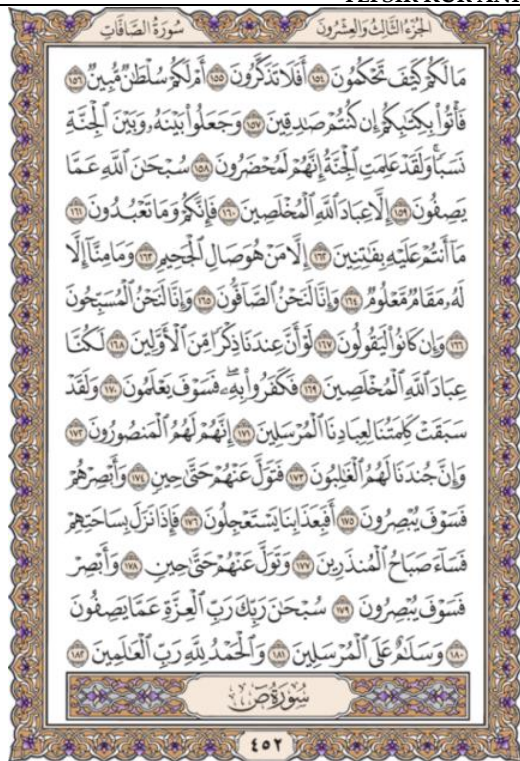 TEFSIR KUR'ANI
الجُزْءُ الثَّالِثُ وَالعِشْرُونَ سُورَةُ الصَّافَّاتِ
مَا لَكُمْ كَيْفَ تَحْكُمُونَ ١٥٤ أَفَلَا تَذَكَّرُونَ ١٥٥ أَمْ لَكُمْ سُلْطَٰنٌ مُّبِينٌ ١٥٦
فَأْتُوا۟ بِكِتَٰبِكُمْ إِن كُنتُمْ صَٰدِقِينَ ١٥٧ وَجَعَلُوا۟ بَيْنَهُۥ وَبَيْنَ ٱلْجِنَّةِ
نَسَبًا ۚ وَلَقَدْ عَلِمَتِ ٱلْجِنَّةُ إِنَّهُمْ لَمُحْضَرُونَ ١٥٨ سُبْحَٰنَ ٱللَّهِ عَمَّا
يَصِفُونَ ١٥٩ إِلَّا عِبَادَ ٱللَّهِ ٱلْمُخْلَصِينَ ١٦٠ فَإِنَّكُمْ وَمَا تَعْبُدُونَ ١٦١
مَآ أَنتُمْ عَلَيْهِ بِفَٰتِنِينَ ١٦٢ إِلَّا مَنْ هُوَ صَالِ ٱلْجَحِيمِ ١٦٣ وَمَا مِنَّآ إِلَّا
لَهُۥ مَقَامٌ مَّعْلُومٌ ١٦٤ وَإِنَّا لَنَحْنُ ٱلصَّآفُّونَ ١٦٥ وَإِنَّا لَنَحْنُ ٱلْمُسَبِّحُونَ
١٦٦ وَإِن كَانُوا۟ لَيَقُولُونَ ١٦٧ لَوْ أَنَّ عِندَنَا ذِكْرًا مِّنَ ٱلْأَوَّلِينَ ١٦٨ لَكُنَّا
عِبَادَ ٱللَّهِ ٱلْمُخْلَصِينَ ١٦٩ فَكَفَرُوا۟ بِهِۦ ۖ فَسَوْفَ يَعْلَمُونَ ١٧٠ وَلَقَدْ
سَبَقَتْ كَلِمَتُنَا لِعِبَادِنَا ٱلْمُرْسَلِينَ ١٧١ إِنَّهُمْ لَهُمُ ٱلْمَنصُورُونَ ١٧٢
وَإِنَّ جُندَنَا لَهُمُ ٱلْغَٰلِبُونَ ١٧٣ فَتَوَلَّ عَنْهُمْ حَتَّىٰ حِينٍ ١٧٤ وَأَبْصِرْهُمْ
فَسَوْفَ يُبْصِرُونَ ١٧٥ أَفَبِعَذَابِنَا يَسْتَعْجِلُونَ ١٧٦ فَإِذَا نَزَلَ بِسَاحَتِهِمْ
فَسَآءَ صَبَاحُ ٱلْمُنذَرِينَ ١٧٧ وَتَوَلَّ عَنْهُمْ حَتَّىٰ حِينٍ ١٧٨ وَأَبْصِرْ
فَسَوْفَ يُبْصِرُونَ ١٧٩ سُبْحَٰنَ رَبِّكَ رَبِّ ٱلْعِزَّةِ عَمَّا يَصِفُونَ
١٨٠ وَسَلَٰمٌ عَلَى ٱلْمُرْسَلِينَ ١٨١ وَٱلْحَمْدُ لِلَّهِ رَبِّ ٱلْعَٰلَمِينَ ١٨٢
سُورَةُ صٓ
٤٥٢